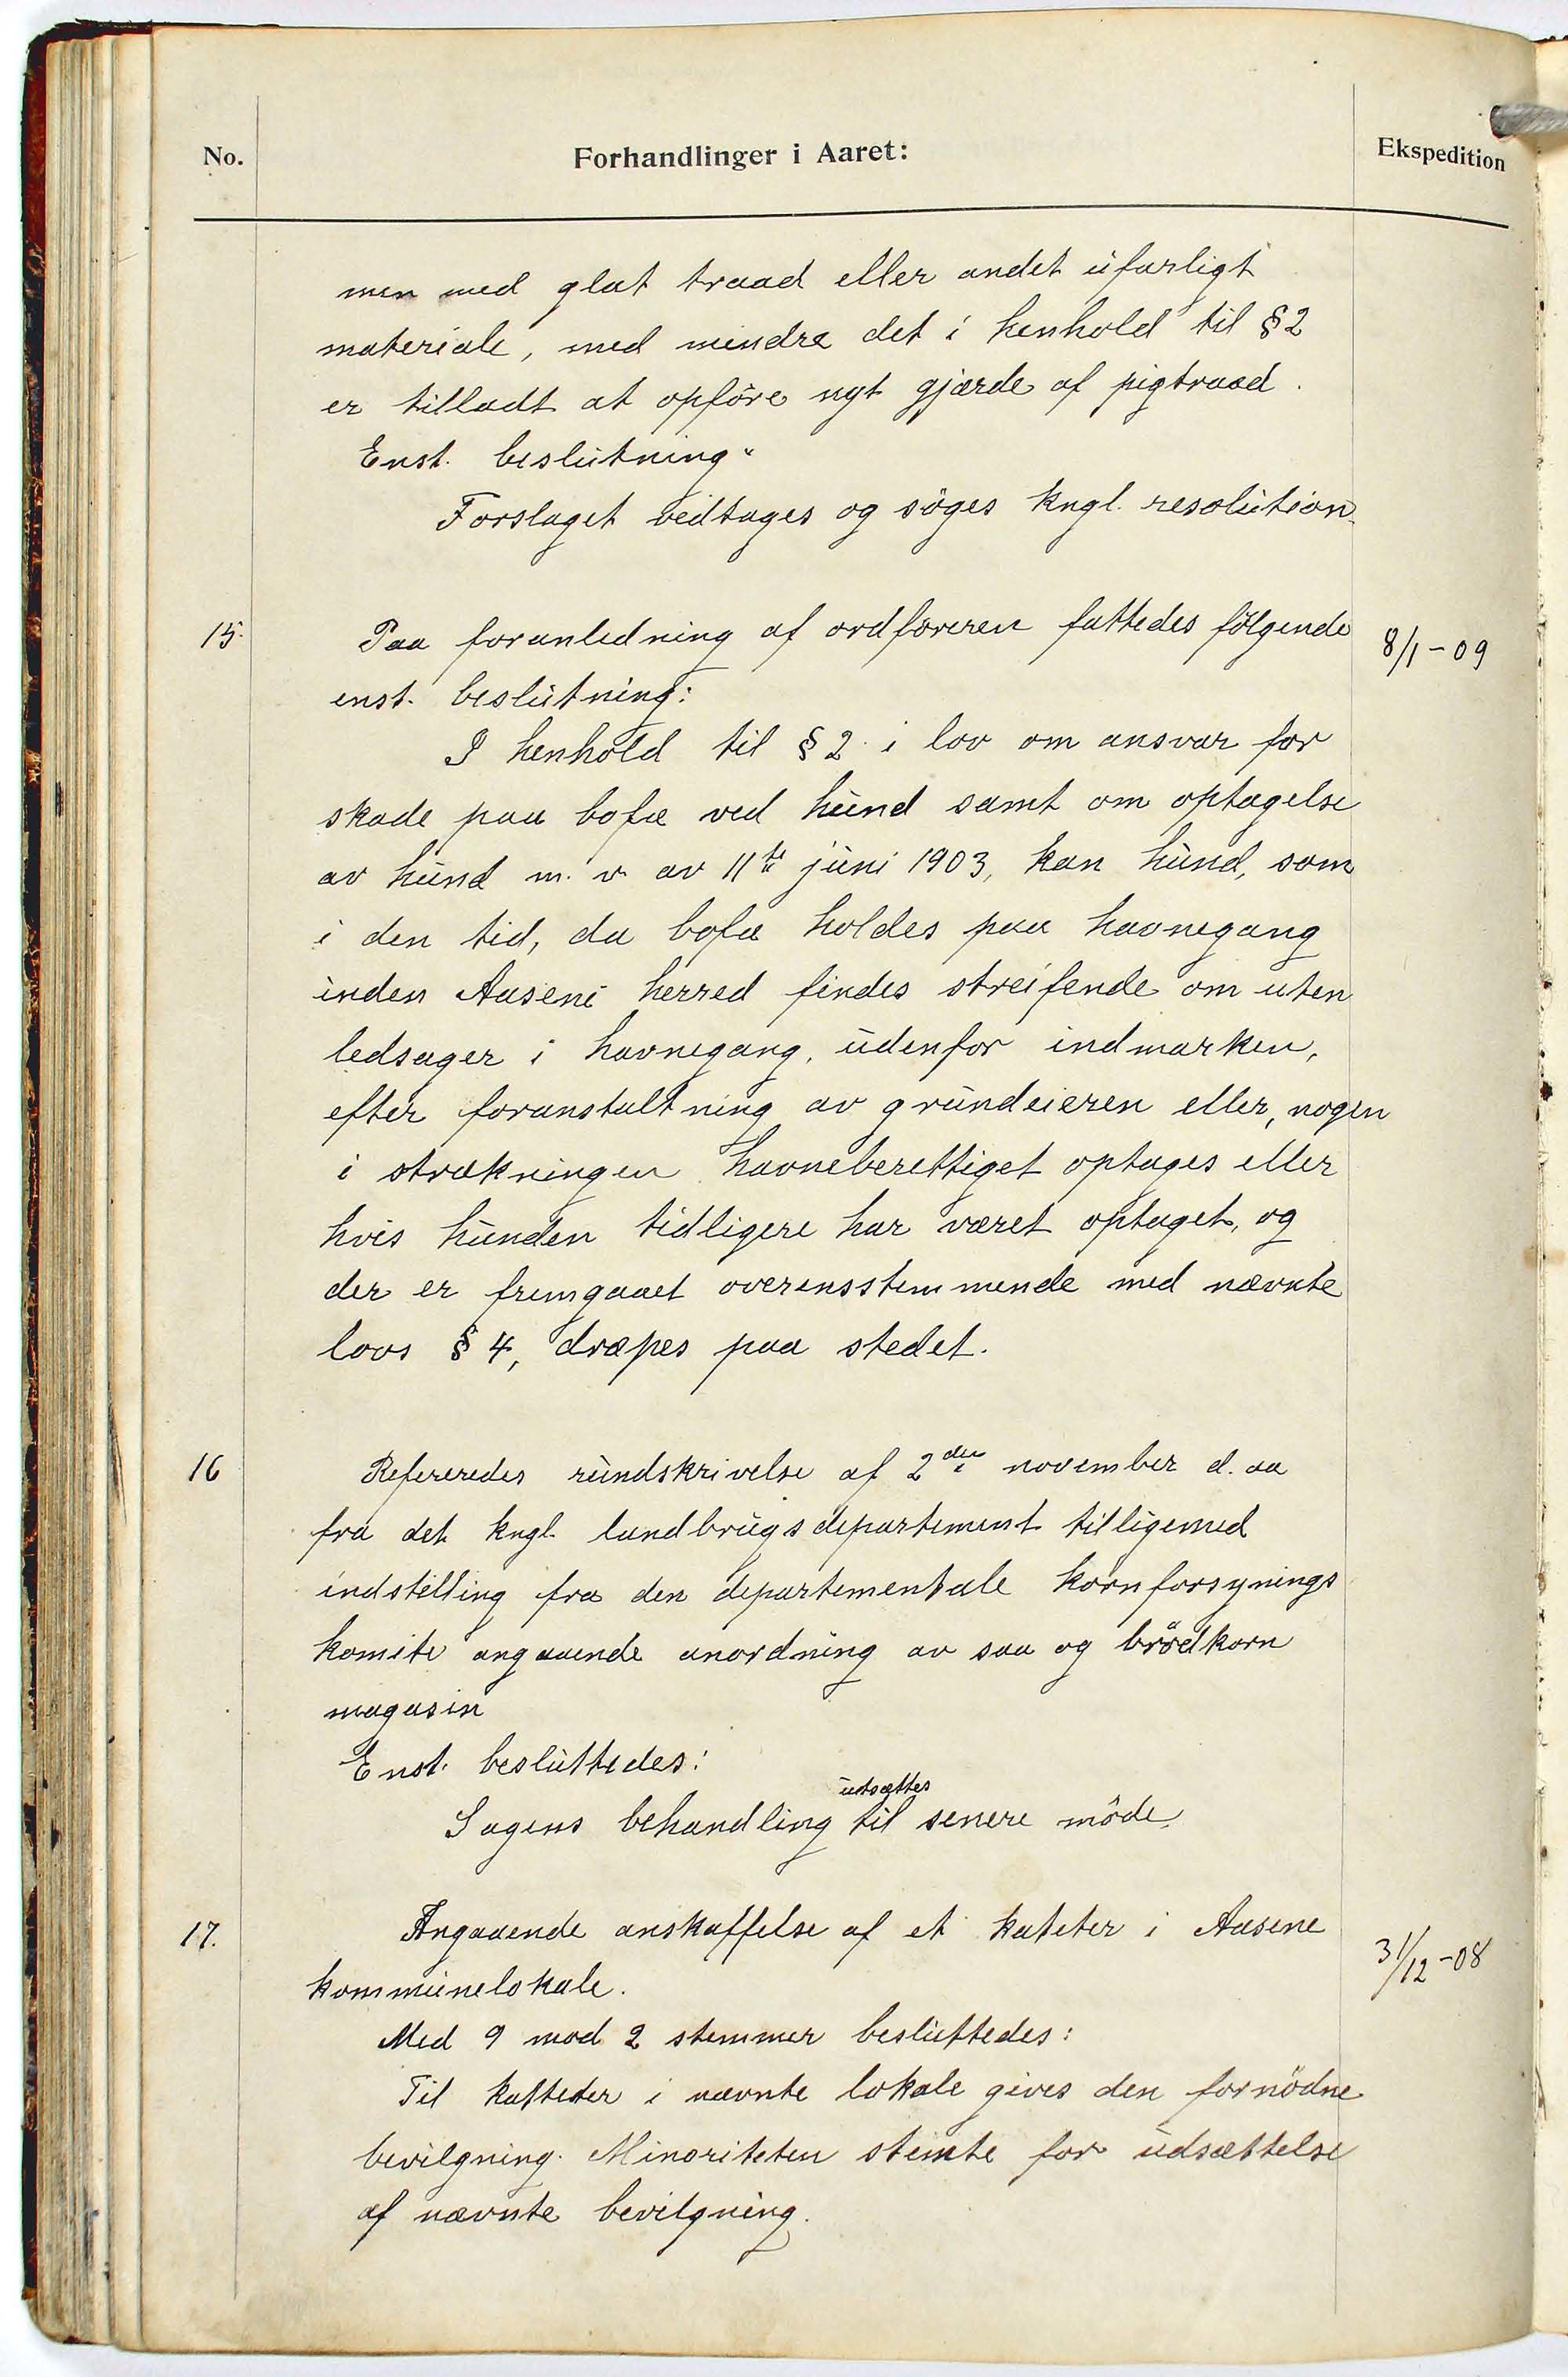 No.
Forhandlinger i Aaret:
Ekspedition
men med glat traad eller andet ufarligt
materiale, med mindre det i henhold til § 2
er tilladt at opføre nyt gjærde af pigtraad.
Enst. beslutning:
Forslaget vedtages og søges kngl. resolution.
15. Paa foranledning af ordføreren fattedes følgende 8/1-09
enst. beslutning:
I henhold til § 2 i lov om ansvar for
skade paa bofæ ved hund samt om optagelse
av hund m. v. av 11te juni 1903, kan hund, som
i den tid, da bofæ holdes paa havnegang
inden Aasene herred findes streifende om uten
ledsager i havnegang, udenfor indmarken,
efter foranstaltning av grundeieren eller, nogen
i strækningen havneberettiget optages eller
hvis hunden tidligere har været optaget, og
der er fremgaaet overensstemmende med nævnte
lovs § 4, dræpes paa stedet.
16 Refereredes rundskrivelse af 2den november d. aa
fra det kngl. landbrugsdepartement tilligemed
indstilling fra den departementale kornforsynings
komite angaaende anordning av saa og brødkorn
magasin
Enst. besluttedes:
Sagens behandling udsættes til senere møde.
17. Angaaende anskaffelse af et kateter i Aasene 31/12-08
kommunelokale.
Med 9 mod 2 stemmer besluttedes:
Til katteder i nævnte lokale gives den fornødne
bevilgning. Minoriteten stemte for udsættelse
af nævnte bevilgning.